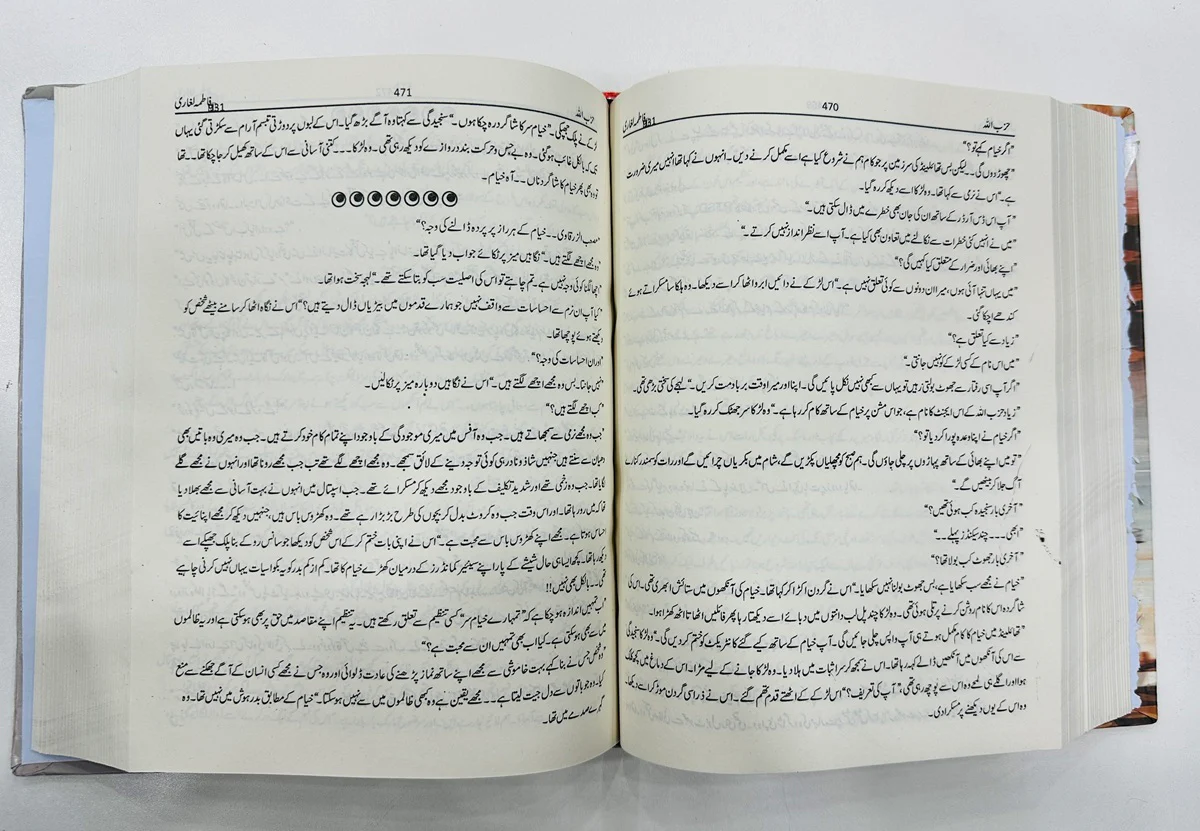 470
حزب اللہ
فاطمہ لغاری
"اگر خیام کہے تو؟"
"چھوڑ دوں گی۔۔ لیکن بس تھائلینڈ کی سرزمین پر جو کام ہم نے شروع کیا ہے اسے مکمل کرنے دیں۔ انہوں نے کہا تھا انہیں میری ضرورت
ہے۔" اس نے نرمی سے کہا تھا۔ وہ لڑکا اسے دیکھ کر رہ گیا۔
"آپ اس ڈس آرڈر کے ساتھ ان کی جان بھی خطرے میں ڈال سکتی ہیں۔"
"میں نے انہیں کئی خطرات سے نکالنے میں تعاون بھی کیا ہے۔ آپ اسے نظر انداز نہیں کرتے۔"
"اپنے بھائی اور ضرار کے متعلق کیا کہیں گی؟"
"میں یہاں تنہا آئی ہوں، میرا ان دونوں سے کوئی تعلق نہیں ہے۔" اس لڑکے نے دائیں ابرو اٹھا کر اسے دیکھا۔ وہ ہلکا سا مسکراتے ہوئے
کندھے اچکا گئی۔
"زیاد سے کیا تعلق ہے؟"
"میں اس نام کے کسی لڑکے کو نہیں جانتی۔"
"اگر آپ اسی رفتار سے جھوٹ بولتی رہیں تو یہاں سے کبھی نہیں نکل پائیں گی۔ اپنا اور میرا وقت برباد مت کریں۔" لہجے کی سختی بڑھی تھی۔
"زیاد حزب اللہ کے اس ایجنٹ کا نام ہے، جو اس مشن پر خیام کے ساتھ کام کر رہا ہے۔" وہ لڑکا سر جھٹک کر رہ گیا۔
"اگر خیام نے اپنا وعدہ پورا کر دیا تو؟"
"تو میں اپنے بھائی کے ساتھ پہاڑوں پر چلی جاؤں گی۔ ہم صبح کو مچھلیاں پکڑیں گے، شام میں بکریاں چرائیں گے اور رات کو سمندر کنارے
آگ جلا کر بیٹھیں گے۔"
"آخری بار سنجیدہ کب ہوئی تھیں؟"
"ابھی۔۔۔ چند سیکنڈز پہلے۔۔"
"آخری بار جھوٹ کب بولا تھا؟"
"خیام نے مجھے سب سکھایا ہے، بس جھوٹ بولنا نہیں سکھایا۔" اس نے گردن اکڑا کر کہا تھا۔ خیام کی آنکھوں میں ستائش ابھری تھی۔ اس کی
شاگردہ اس کا نام روشن کرنے پر تلی ہوئی تھی۔ وہ لڑکا چند پل لب دانتوں میں دبائے اسے دیکھتا رہا پھر فائلیں اٹھاتا اٹھ کھڑا ہوا۔
"تھائلینڈ میں خیام کا کام مکمل ہوتے ہی آپ واپس چلی جائیں گی۔ آپ خیام کے ساتھ کیے گئے کانٹریکٹ کو ختم کر دیں گی۔" وہ لڑکا سنجیدگی
سے اس کی آنکھوں میں آنکھیں ڈالے کہہ رہا تھا۔ اس نے سمجھ کر سر اثبات میں ہلا دیا۔ وہ لڑکا جانے کے لیے مڑا۔ اس کے دماغ میں کچھ کلک
ہوا اور اگلے ہی لمحے وہ اس سے پوچھ رہی تھی۔ "آپ کی تعریف؟" اس لڑکے کے اٹھتے قدم تھم گئے۔ اس نے ذرا سی گردن موڑ کر اسے دیکھا۔
وہ اس کے یوں دیکھنے پر مسکرا دی۔
471
حزب اللہ
فاطمہ لغاری
لڑکے نے پلک جھپکی۔ "خیام سر کا شاگرد رہ چکا ہوں۔" سنجیدگی سے کہتا وہ آگے بڑھ گیا۔ اس کے لبوں پر دوڑتی تبسم آرام سے سکڑتی گئی یہاں
تک کہ بالکل غائب ہو گئی۔ وہ بے حس و حرکت بند دروازے کو دیکھ رہی تھی۔ وہ لڑکا۔۔۔ کتنی آسانی سے اس کے ساتھ کھیل کر جا چکا تھا۔۔ تھا
تو وہ بھی پھر خیام کا شاگرد ناں۔۔۔ آہ خیام۔
"مصعب الزرقاوی۔۔ خیام کے ہر راز پر پردہ ڈالنے کی وجہ؟"
"وہ مجھے اچھے لگتے ہیں۔" نگاہیں میز پر ٹکائے جواب دیا گیا تھا۔
"اچھا لگنا کوئی وجہ نہیں ہے۔ تم چاہتے تو اس کی اصلیت سب کو بتا سکتے تھے۔" لہجہ سخت ہوا تھا۔
"کیا آپ ان نرم سے احساسات سے واقف نہیں جو ہمارے قدموں میں بیڑیاں ڈال دیتے ہیں؟" اس نے نگاہ اٹھا کر سامنے بیٹھے شخص کو
دیکھتے ہوئے پوچھا تھا۔
"اور ان احساسات کی وجہ؟"
"نہیں جانتا۔ بس وہ مجھے اچھے لگتے ہیں۔" اس نے نگاہیں دوبارہ میز پر ٹکا لیں۔
"کب اچھے لگتے ہیں؟"
"جب وہ مجھے نرمی سے سمجھاتے ہیں۔ جب وہ آفس میں میری موجودگی کے باوجود اپنے تمام کام خود کرتے ہیں۔ جب وہ میری وہ باتیں بھی
دھیان سے سنتے ہیں جنہیں شاذونادر ہی کوئی توجہ دینے کے لائق سمجھے۔ وہ مجھے اچھے لگے تھے تب جب مجھے رونا تھا اور انہوں نے مجھے گلے
لگایا تھا۔ جب وہ زخمی تھے اور شدید تکلیف کے باوجود مجھے دیکھ کر مسکرائے تھے۔ جب اسپتال میں انہوں نے بہت آسانی سے مجھے بھلا دیا
تھا کہ میں رو رہا تھا۔ اور اس وقت جب وہ کروٹ بدل کر بچوں کی طرح بڑبڑا رہے تھے۔ وہ کھڑوس باس ہیں، جنہیں دیکھ کر مجھے اپنائیت کا
احساس ہوتا ہے۔ مجھے اپنے کھڑوس باس سے محبت ہے۔" اس نے اپنی بات ختم کر کے اس شخص کو دیکھا جو سانس روکے بنا پلک جھپکے اسے
دیکھ رہا تھا۔ کچھ ایسا ہی حال شیشے کے پار اپنے سینیئر کمانڈرز کے درمیان کھڑے خیام کا تھا۔ کم از کم بدر کو یہ بکواسیات یہاں نہیں کرنی چاہیے
تھی۔۔ بالکل بھی نہیں!!
"اب تمہیں اندازہ ہو چکا ہے کہ "تمہارے خیام سر" کسی تنظیم سے تعلق رکھتے ہیں۔ یہ تنظیم اپنے مقاصد میں حق پر بھی ہو سکتی ہے اور یہ ظالموں
میں سے بھی ہو سکتی ہے۔ کیا اب بھی تمہیں ان سے محبت ہے؟"
"وہ شخص جس نے بنا کہے بہت خاموشی سے مجھے اپنے ساتھ نماز پڑھنے کی عادت ڈلوائی اور وہ جس نے مجھے کسی انسان کے آگے جھکنے سے منع
کیا۔ وہ جو باتوں سے دل جیت لیتا ہے۔۔۔ مجھے یقین ہے وہ کبھی ظالموں میں سے نہیں ہو سکتا۔" خیام کے مطابق بدر ہوش میں نہیں تھا۔ وہ
گہرے صدمے میں تھا۔